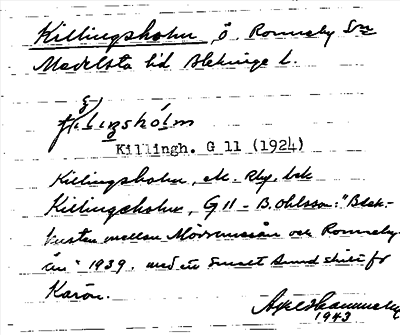 Killingsholm, ö, Ronneby Sn
Medelsta hd Blekinge l.
Killingh. G 11 (1924)
Killingsholm, ek. 
Killingsholm, G 11 - B. Ohlsson: "Blek.
kusten mellan Mörrumsån och Ronneby-
ån" 1939. med en smalt sund skild fr
Karön.
1943